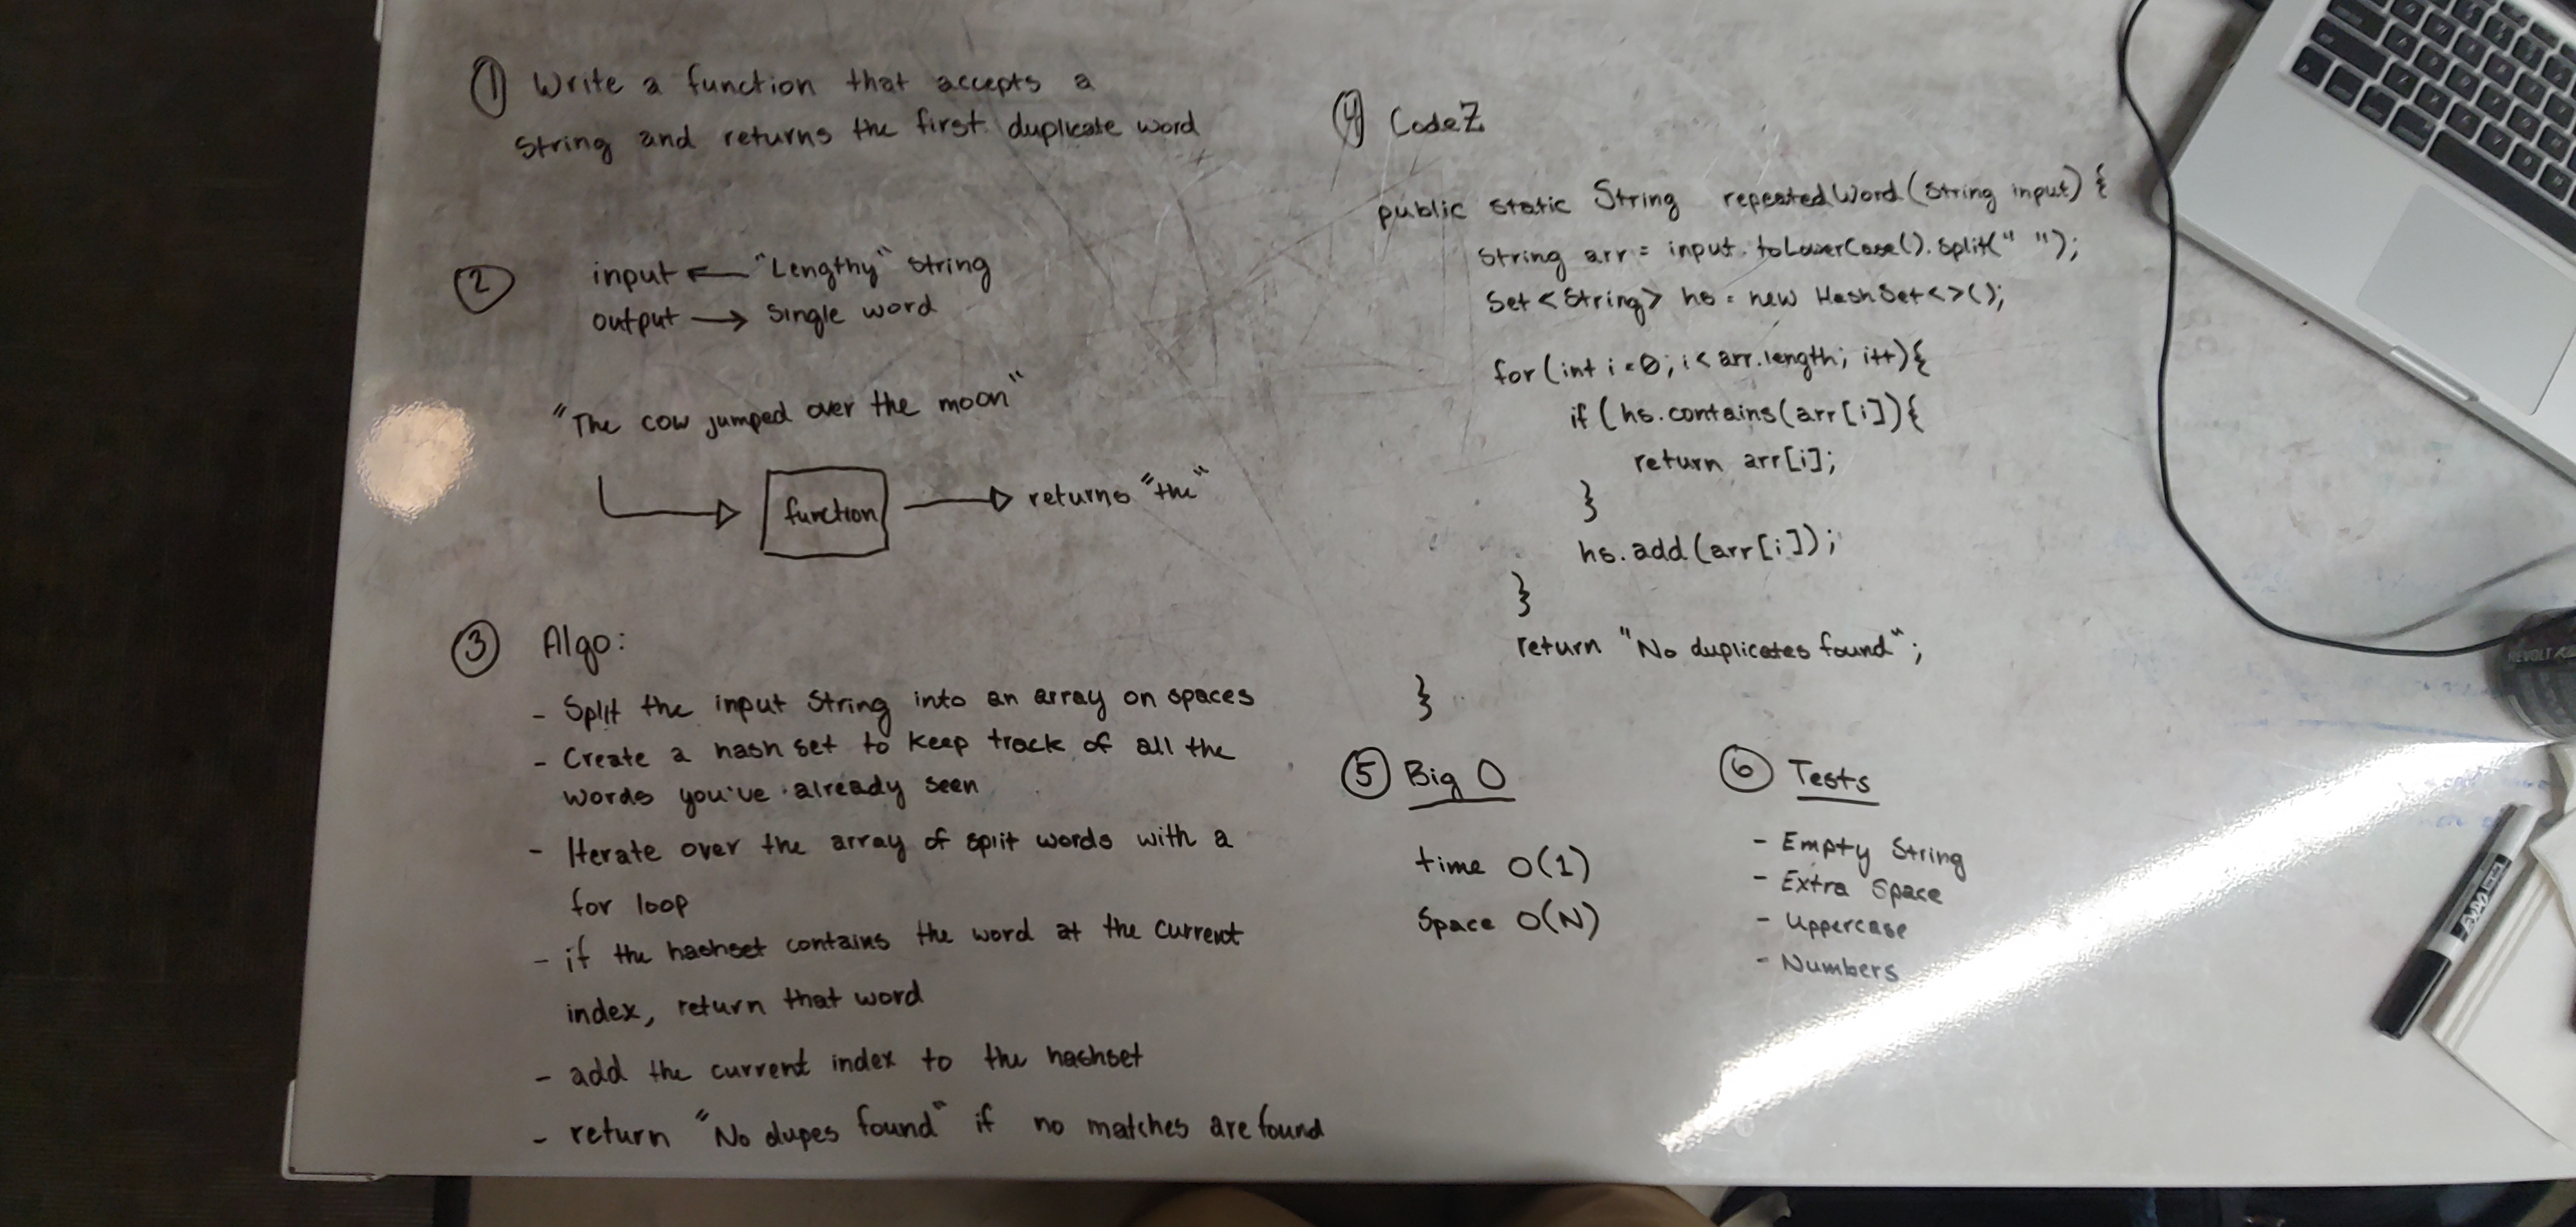 ① Write a function that accepts a
String and returns the first duplicate word
② input ← "Lengthy" string
output → single word
"The cow jumped over the moon"
function → returns "the"
③ Algo:
- Split the input String into an array on spaces
- Create a hash set to keep track of all the
words you've already seen
- Iterate over the array of split words with a
for loop
- if the hashset contains the word at the current
index, return that word
- add the current index to the hashset
- return "No dupes found" if no matches are found
④ CodeZ
public static String repeatedWord(String input) {
String arr = input.toLowerCase().split(" ");
Set<String> hs = new HashSet<>();
for(int i=0; i< arr.length; i++){
if (hs.contains(arr[i]){
return arr[i];
}
hs.add(arr[i]);
}
return "No duplicates found";
}
⑤ Big O
time O(1)
Space O(N)
⑥ Tests
- Empty String
- Extra Space
- Uppercase
- Numbers
EXPO